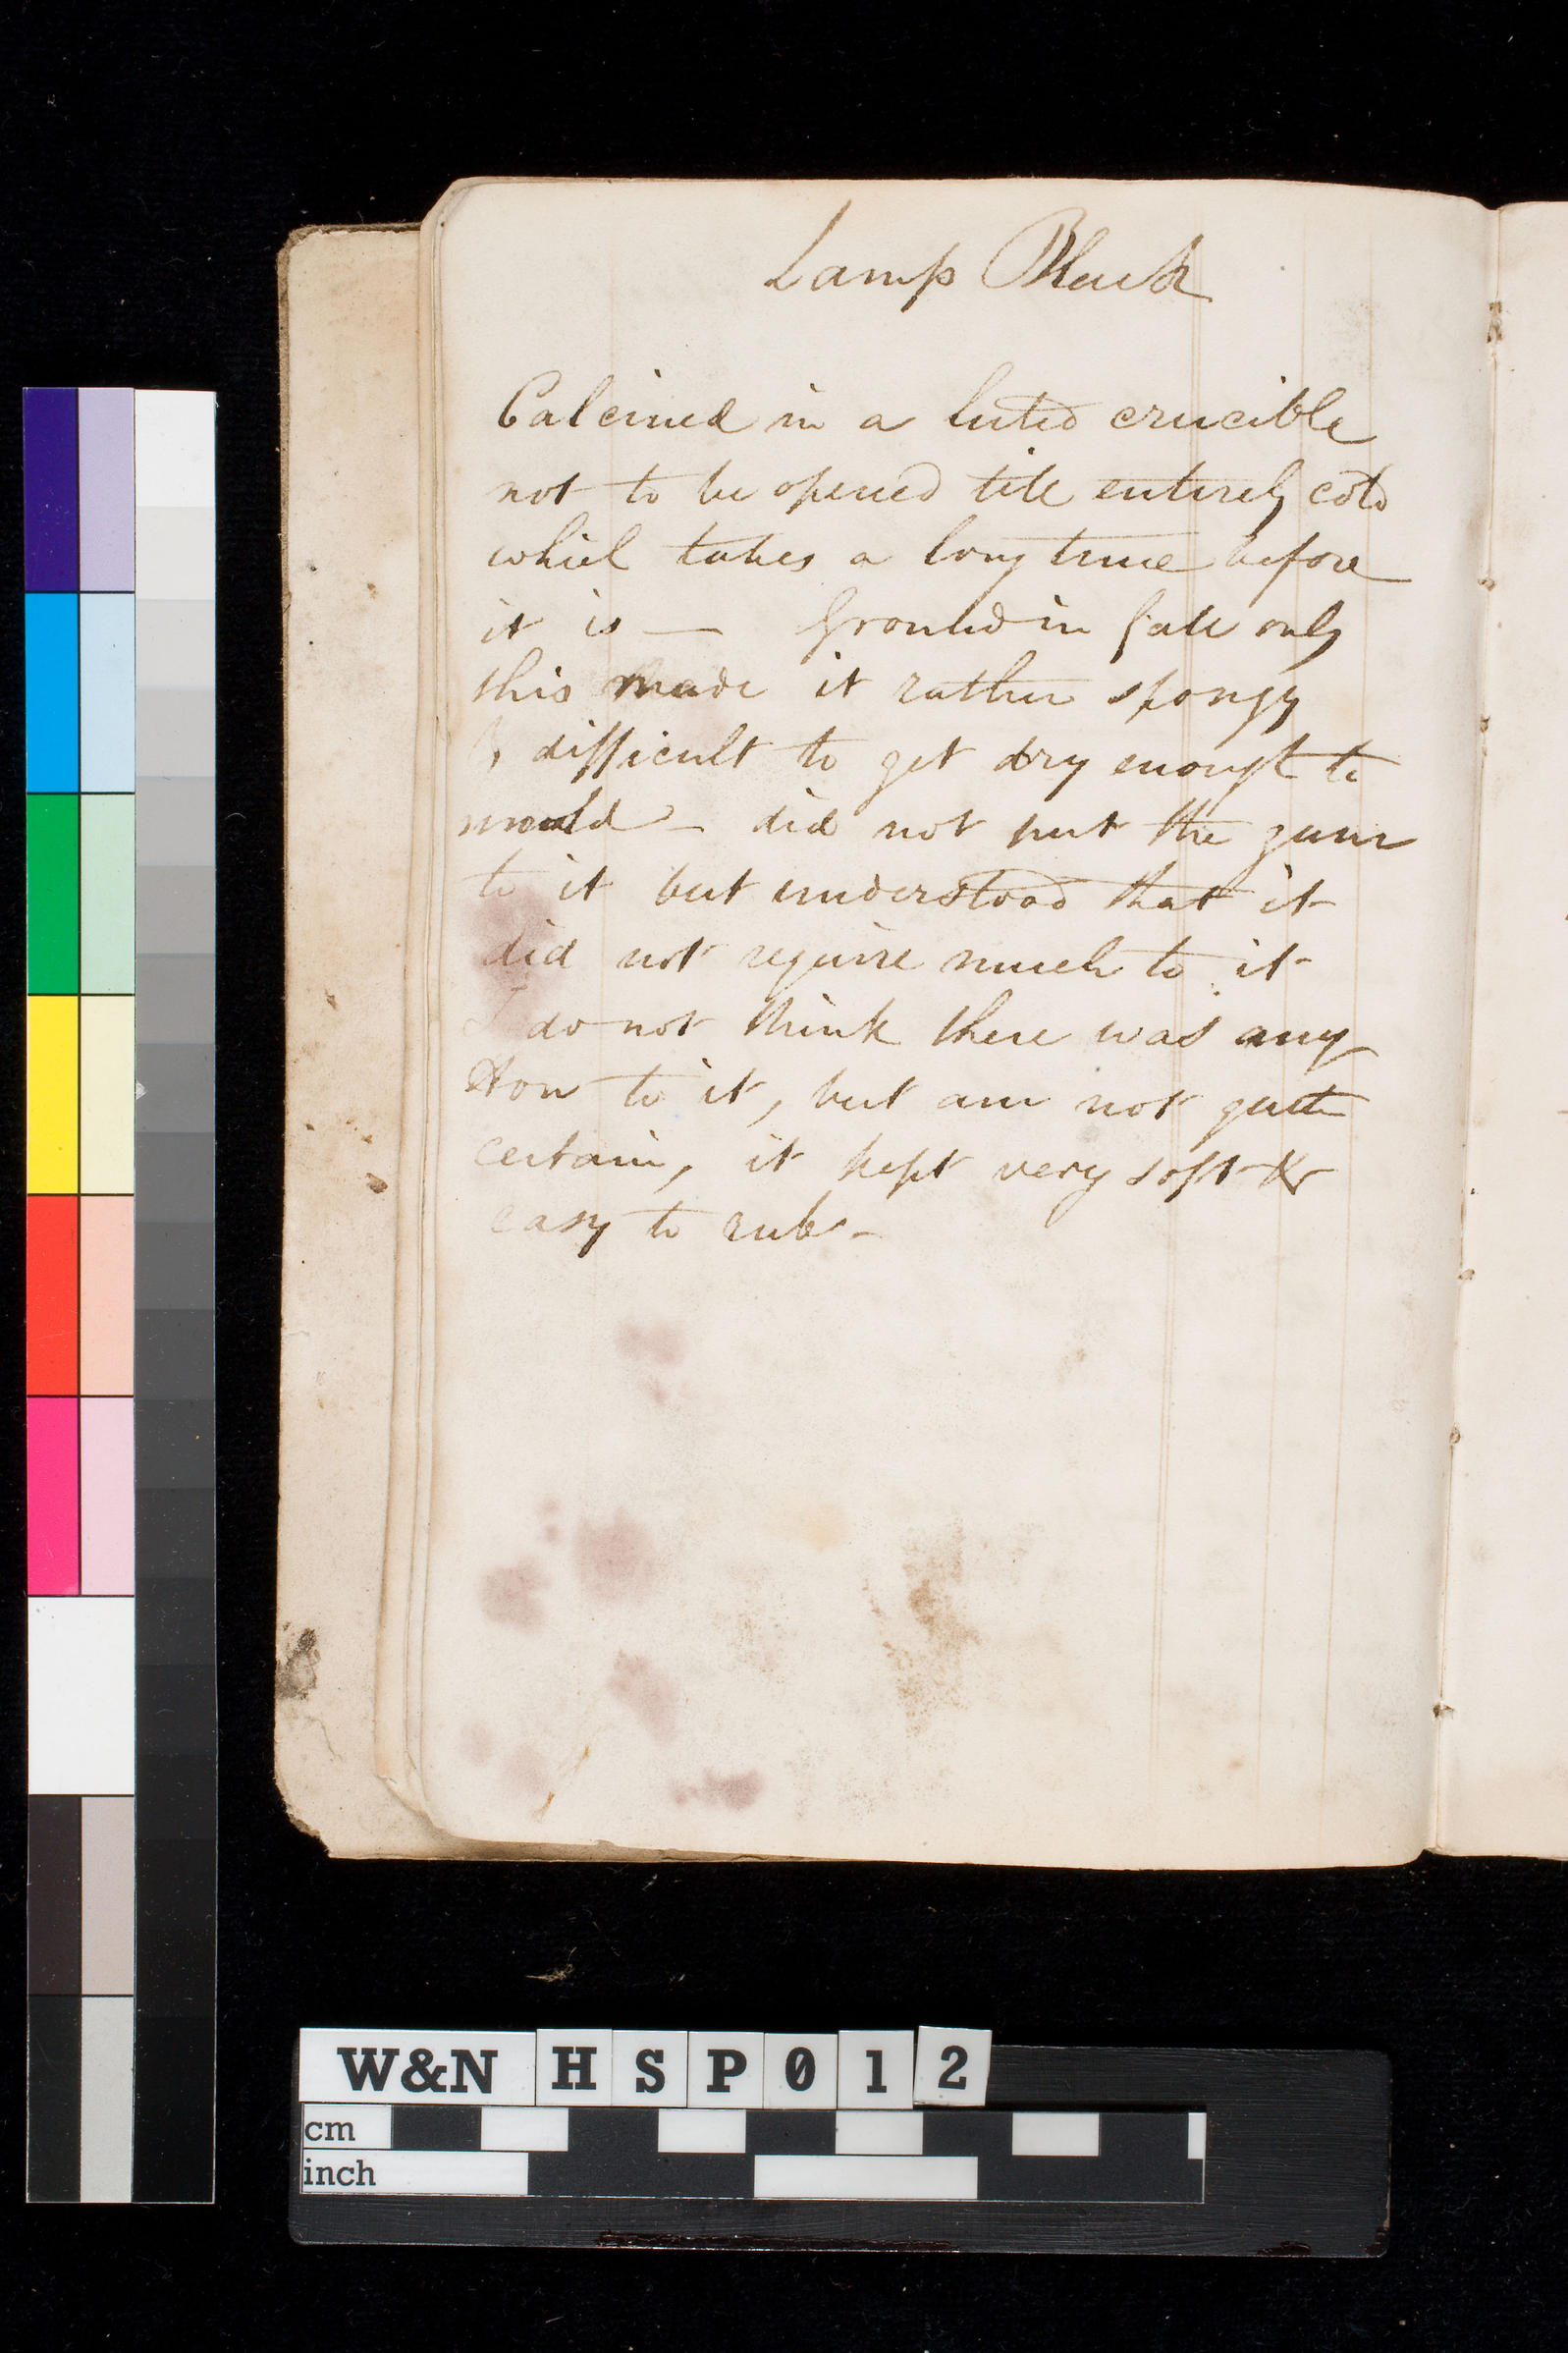 Lamp Black
Calcined in a luted crucible
not to be opened till entirely cold
which takes a long time before
it is — Ground in Gall only
this made it rather spongy
& difficult to get dry enough to
mould — did not put the gum
to it but understood that it
did not require much to it
I do not think there was any
Hon to it, but am not quite
certain, it kept very soft &
easy to rub -
W&N HSP012
cm
inch